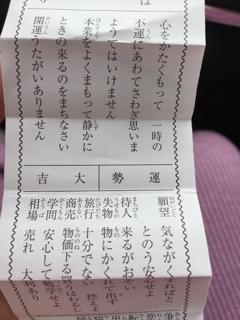 心をかたくもって 一時の
不運にあわてさわぎ思いま
ようてはいけません
本業をよくまもって静かに
ときの来るのをまちなさい
開運うたがいありません
運勢 大吉
願望 気ながくれば
とのう 安心せよ
待人 来るがおそ
失物 物にかくれて出
旅行 十分でない
商売 物価下る 買
学問 安心して勉学せよ
相場 売れ 大利あり